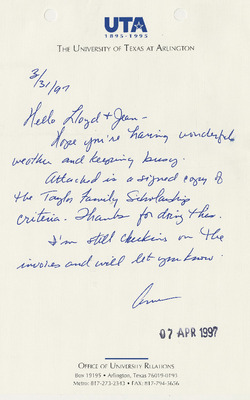 UTA
1895-1995
THE UNIVERSITY OF TEXAS AT ARLINGTON
3/31/97
Hello Lloyd + Jean -
Hope you're having wonderful
weather and keeping busy.
Attached is a signed copy of
the Taylor Family Scholarship
criteria. Thanks for doing this.
I'm still checking on the
invoices and will let you know.
07 APR 1997
OFFICE OF UNIVERSITY RELATIONS
Box 19195 • Arlington, Texas 76019-0195
Metro: 817-273-2343 • FAX: 817-794-5656